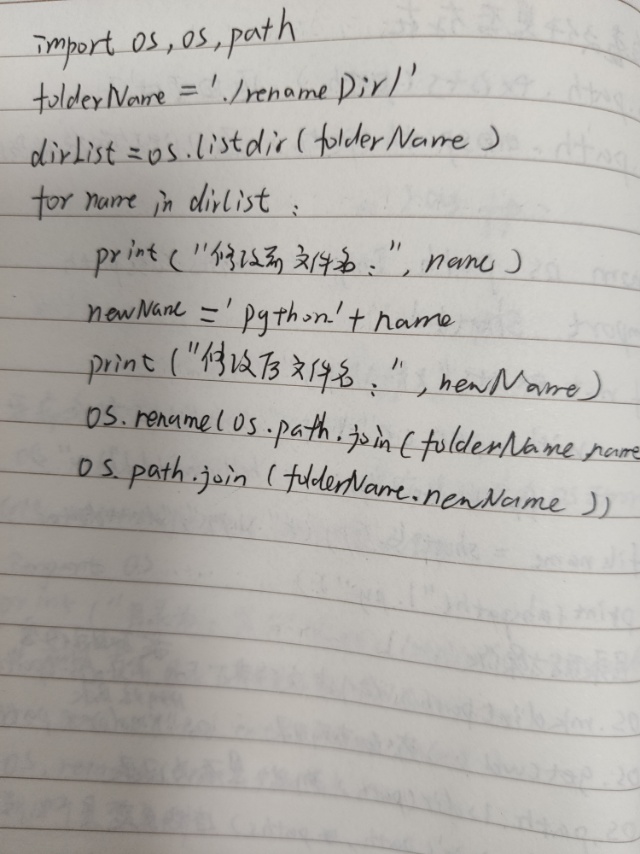 import os,os,path
folderName = './renameDir/'
dirList = os.listdir(folderName)
for name in dirlist:
print("修改前文件名:", name)
newName = 'python'+ name
print("修改后文件名:", newName)
os.rename(os.path.join(folderName name
os.path.join(folderName.newName))